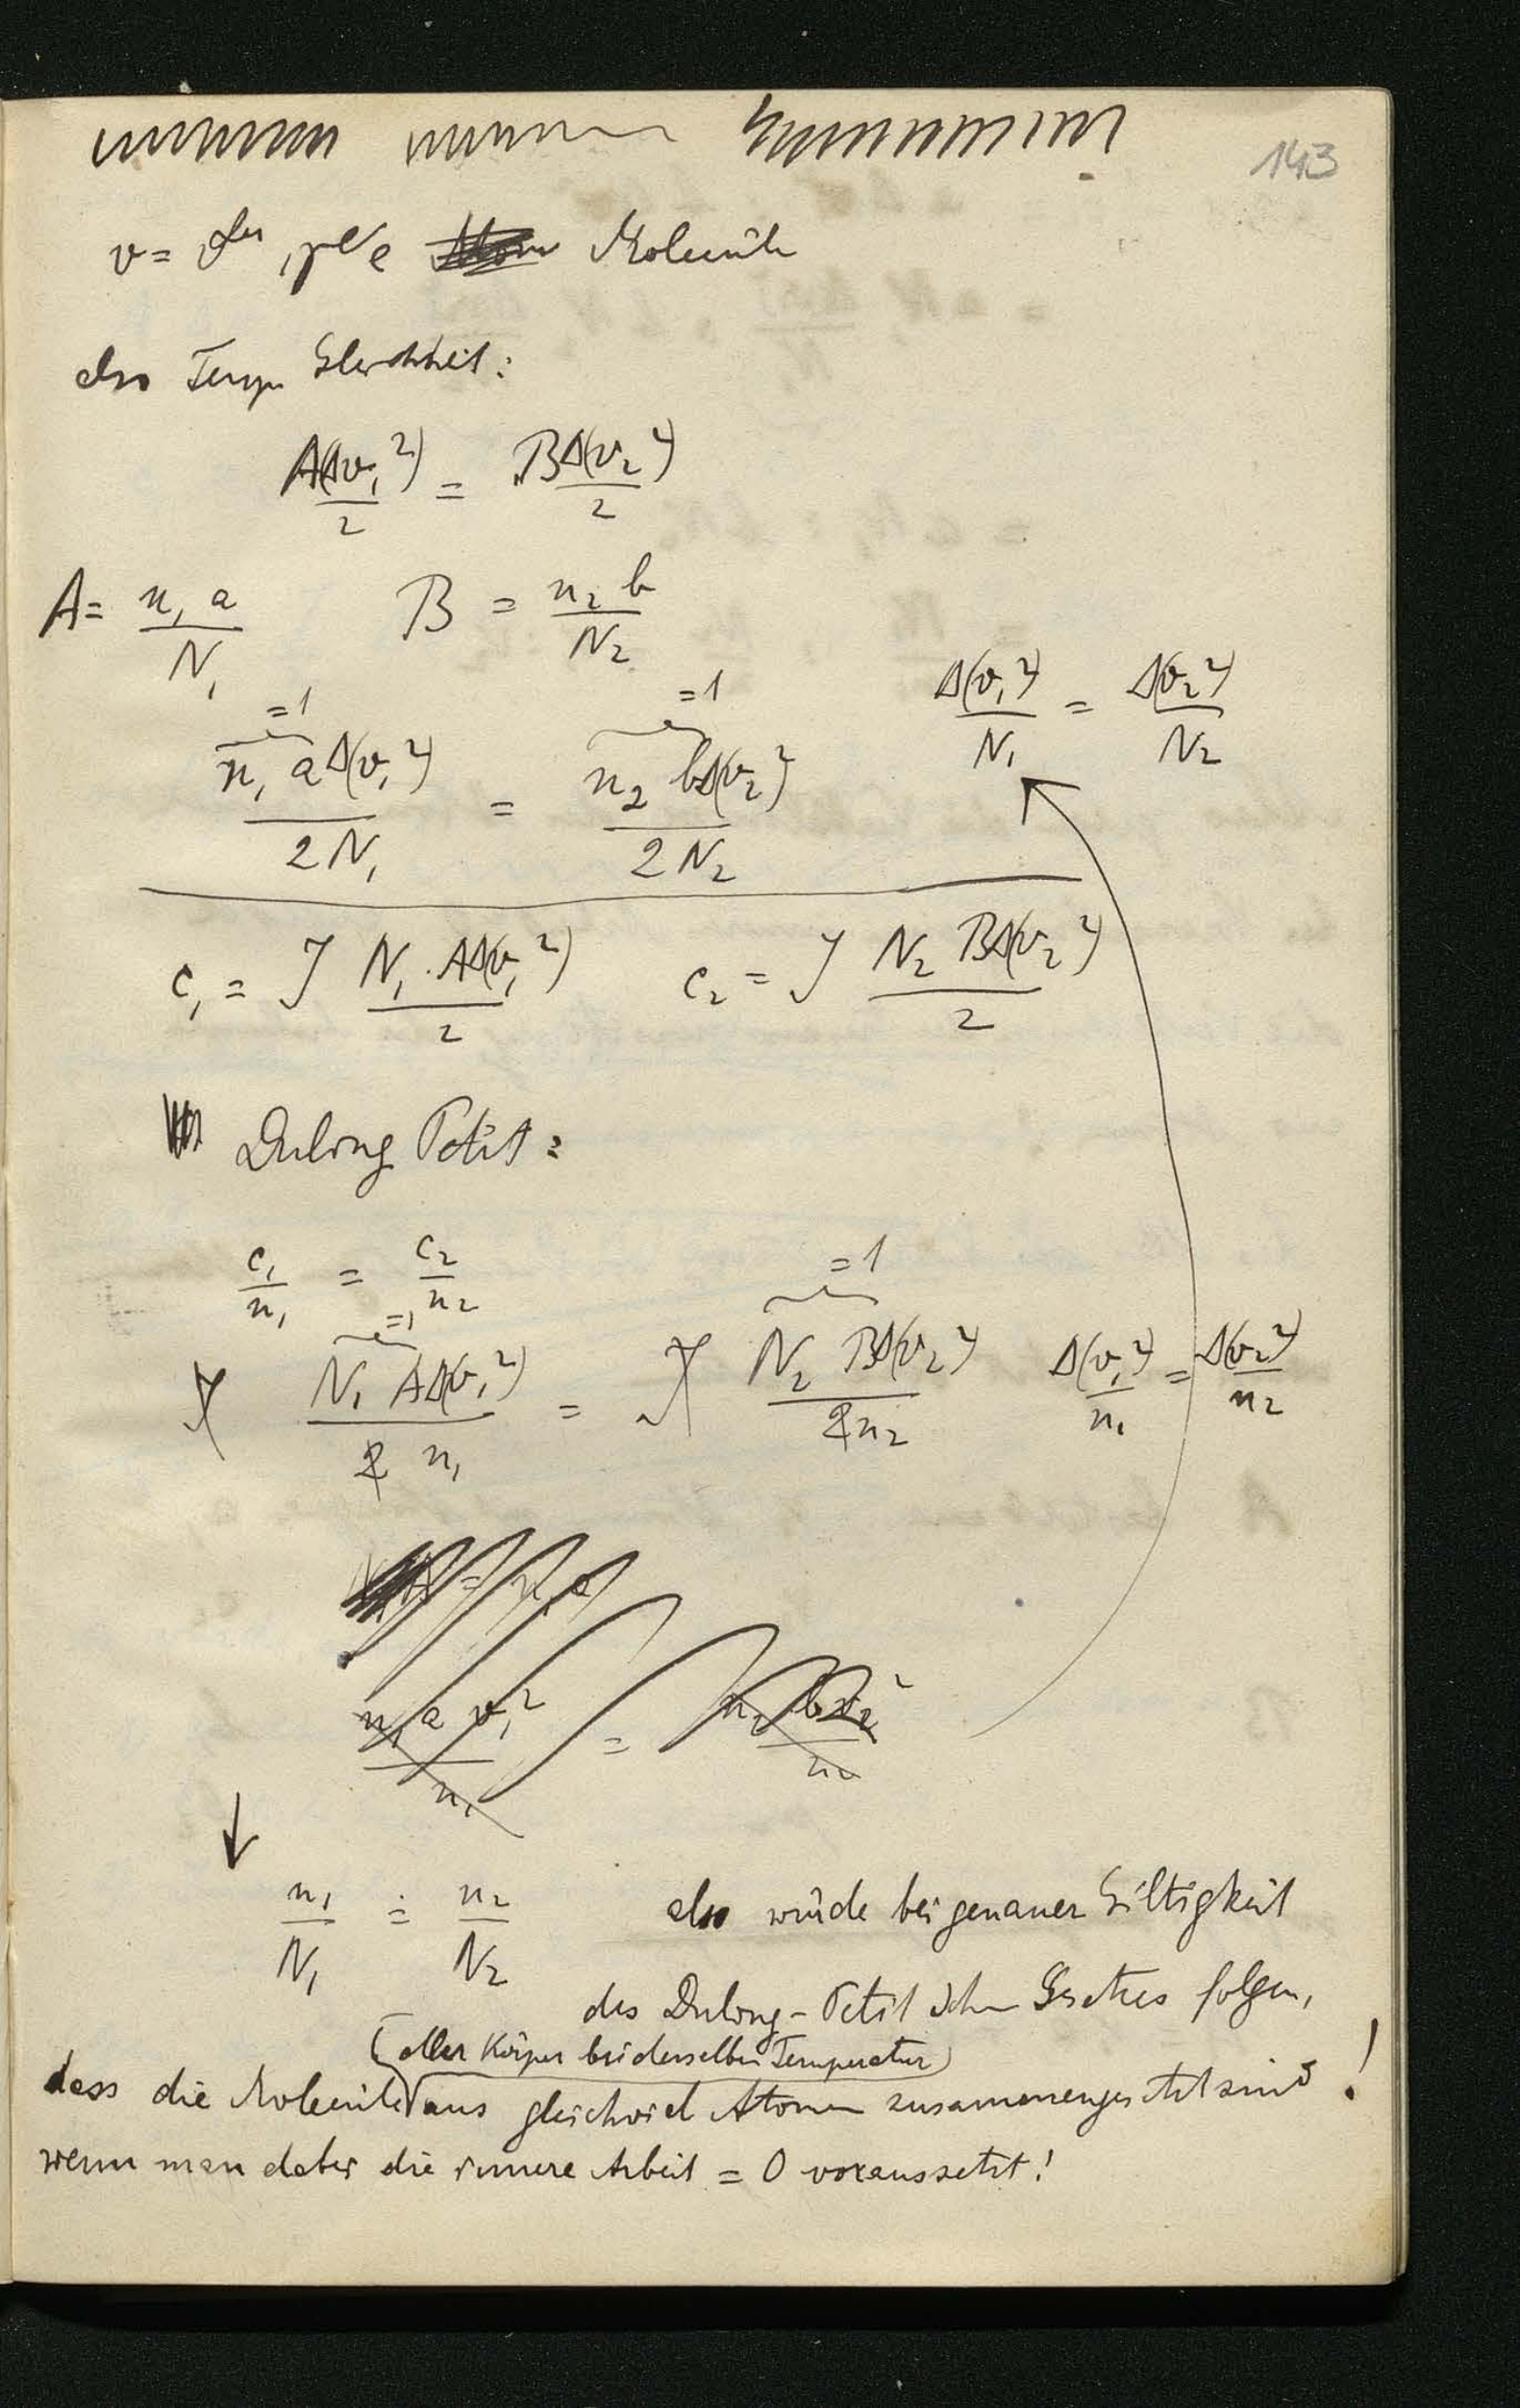 143
v = der , Molecüle
also Temp. Gleichheit:
A Δ(v₁²)/2 = B Δ(v₂²)/2
A = n₁ a / N₁    B = n₂ b / N₂
Δ(v₁²)/N₁ = Δ(v₂²)/N₂
=1    =1
n₁ a Δ(v₁²) / 2N₁ = n₂ b Δ(v₂²) / 2N₂
c₁ = J N₁ . A Δ(v₁²) / 2    c₂ = J N₂ B Δ(v₂²) / 2
Dulong Petit:
c₁/n₁ = c₂/n₂
=1    =1
J N₁ A Δ(v₁²) / 2 n₁ = J N₂ B Δ(v₂²) / 2n₂    Δ(v₁²)/n₁ = Δ(v₂²)/n₂
n₁ a v₁² / n₁ = n₂ b v₂² / n₂
↓
n₁/N₁ = n₂/N₂    also würde bei genauer Giltigkeit
des Dulong-Petit'schen Gesetzes folgen,
(aller Körper bei derselben Temperatur)
dass die Molecüle aus gleichviel Atomen zusammengesetzt sind!
wenn man dabei die innere Arbeit = 0 voraussetzt!